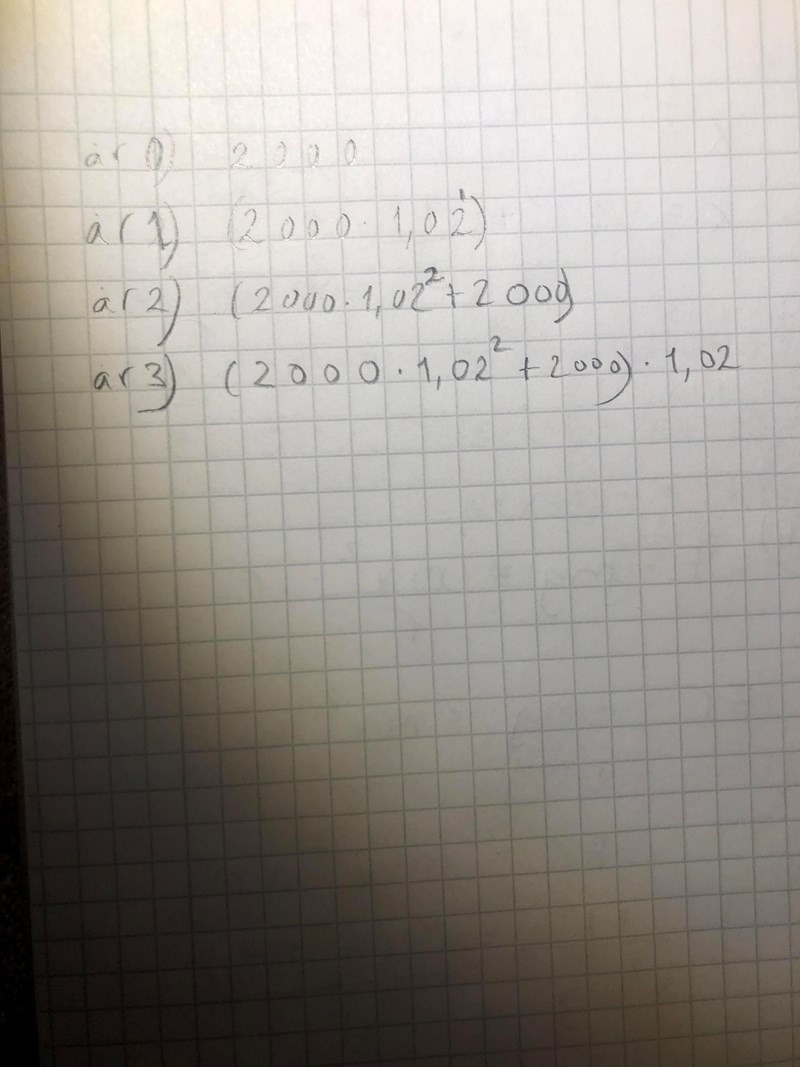 år 0) 2000
år 1) (2000 · 1,02¹)
år 2) (2000 · 1,02² + 2000)
år 3) (2000 · 1,02² + 2000) · 1,02